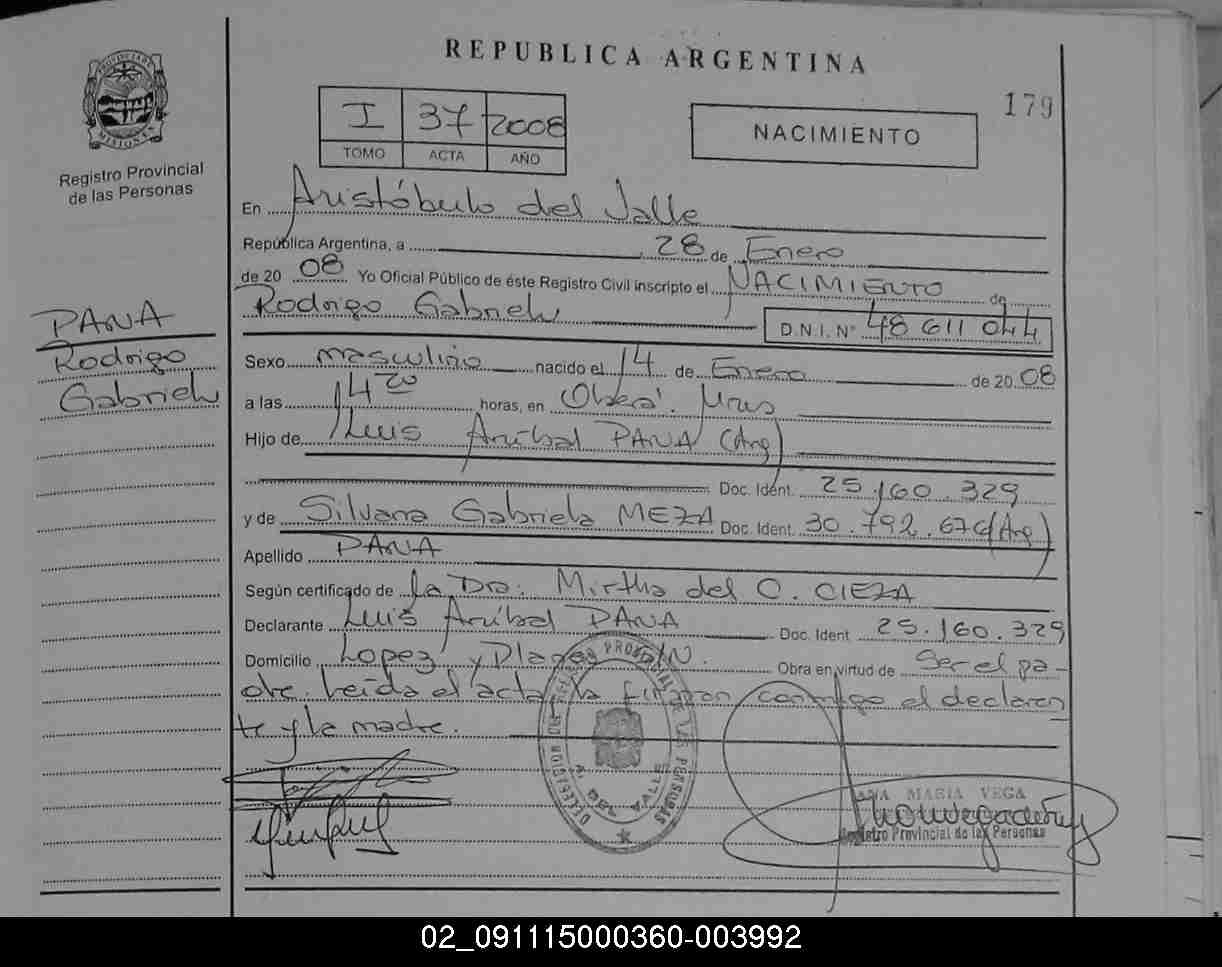 REPUBLICA ARGENTINA
179
PROVINCIA DE MISIONES
Registro Provincial
de las Personas
I 37 2008
TOMO ACTA AÑO
NACIMIENTO
En Aristóbulo del Valle
República Argentina, a 28 de Enero
de 20 08 Yo Oficial Público de éste Registro Civil inscripto el NACIMIENTO de
Rodrigo Gabriel D.N.I. Nº 48 611 044
PANA
Rodrigo
Gabriel
Sexo masculino nacido el 14 de Enero de 20 08
a las 14 20 horas, en Oberá. Mnes
Hijo de Luis Aníbal PANA (Arg)
Doc. Ident. 25.160.329
y de Silvana Gabriela MEZA Doc. Ident. 30.792.676 (Arg)
Apellido PANA
Según certificado de la Dra. Mirtha del C. CIEZA
Declarante Luis Aníbal PANA Doc. Ident 25.160.329
Domicilio Lopez y Planes S/N. Obra en virtud de Ser el pa-
dre. Leida el acta la firman conmigo el declaran
te y la madre.
DELEGACION DEL REGISTRO PROVINCIAL DE LAS PERSONAS
A. DEL VALLE
ANA MARIA VEGA
Registro Provincial de las Personas
02_091115000360-003992